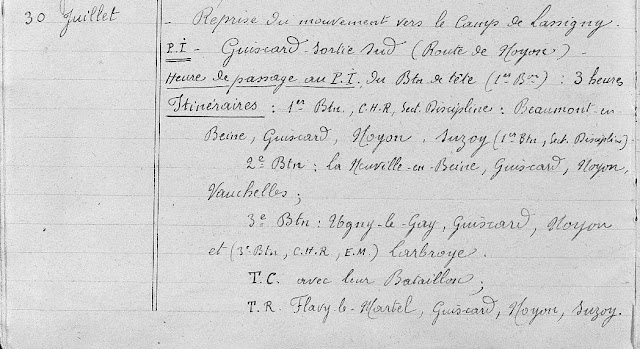 30 Juillet - Reprise du mouvement vers le Camp de Lassigny.
P.I - Guiscard-Sortie Sud (Route de Noyon) -
Heure de passage au P.I. du Btn de tête (1er Btn) : 3 heures
Itinéraires : 1er Btn., C.H.R, Sect. Discipline : Beaumont-en
Beine, Guiscard, Noyon, Suzoy (1er Btn, Sect. Discipline).
2e Btn : la Neuville-en-Beine, Guiscard, Noyon,
Vauchelles ;
3e Btn : Ugny-le-Gay, Guiscard, Noyon
et (3e Btn, C.H.R, E.M.) Larbroye.
T.C. avec leur Bataillon ;
T.R. Flavy-le-Martel, Guiscard, Noyon, Suzoy.